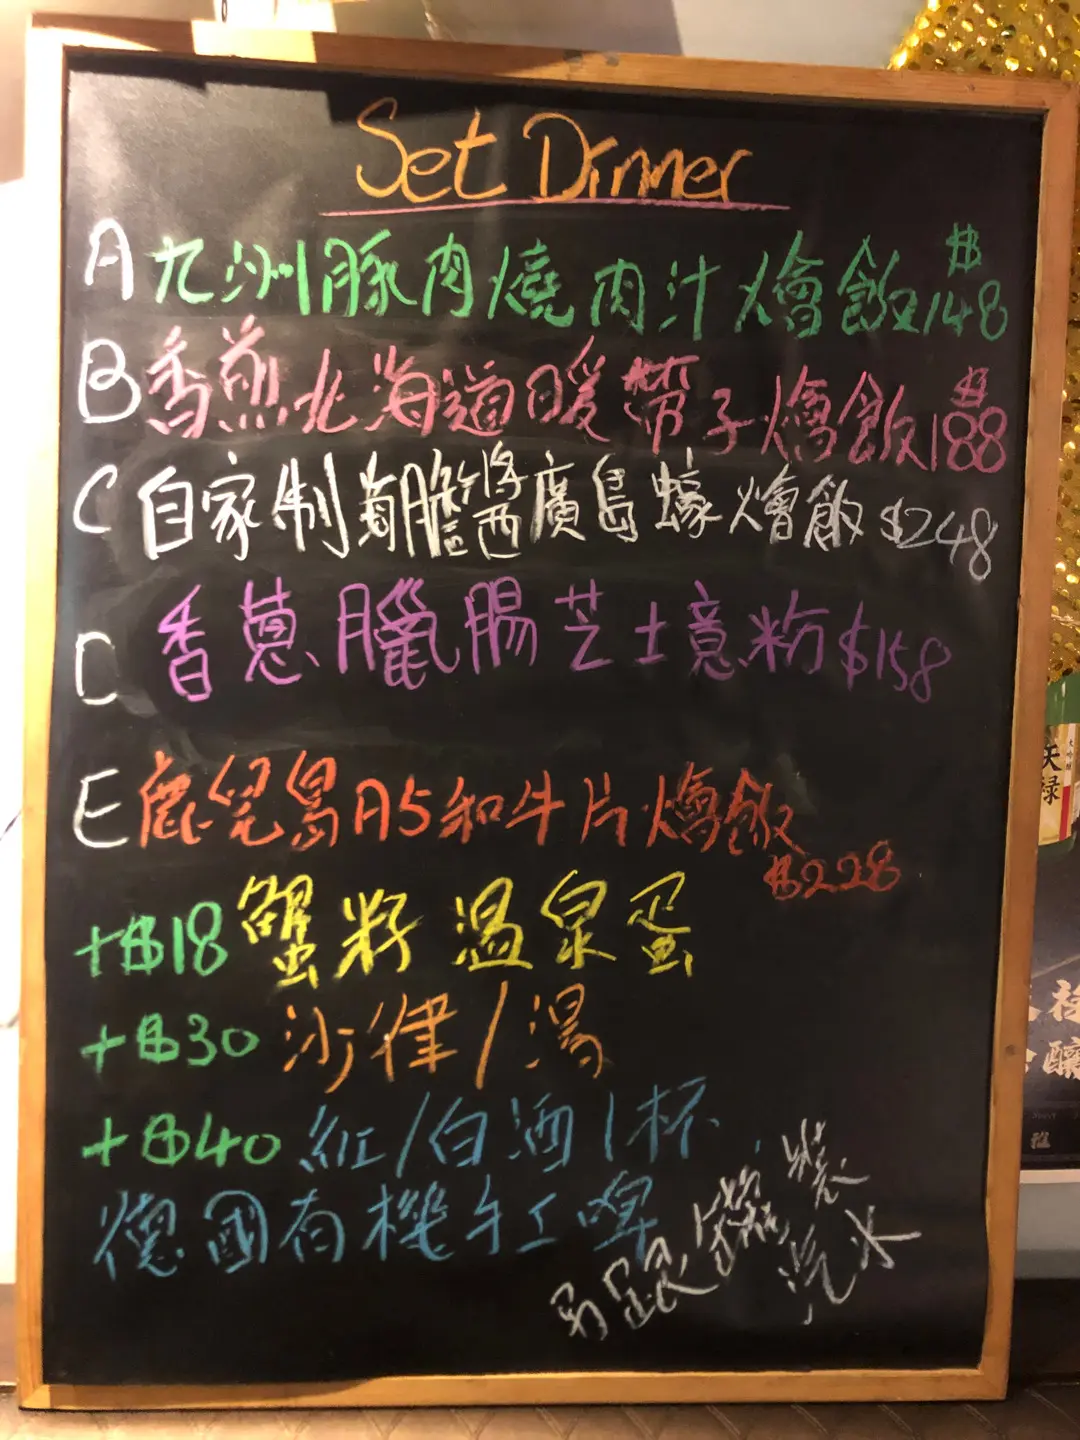 Set Dinner
A 九洲豚肉燒肉汁燴飯 $148
B 香煎北海道暖帶子燴飯 $188
C 自家制海膽醬廣島蠔燴飯 $248
D 香蔥臘腸芝士意粉 $158
E 鹿兒島A5和牛片燴飯
$228
+$18 蟹籽温泉蛋
+$30 沙律/湯
+$40 紅/白酒1杯
德國有機手工啤
另跟罐裝
汽水
天禄